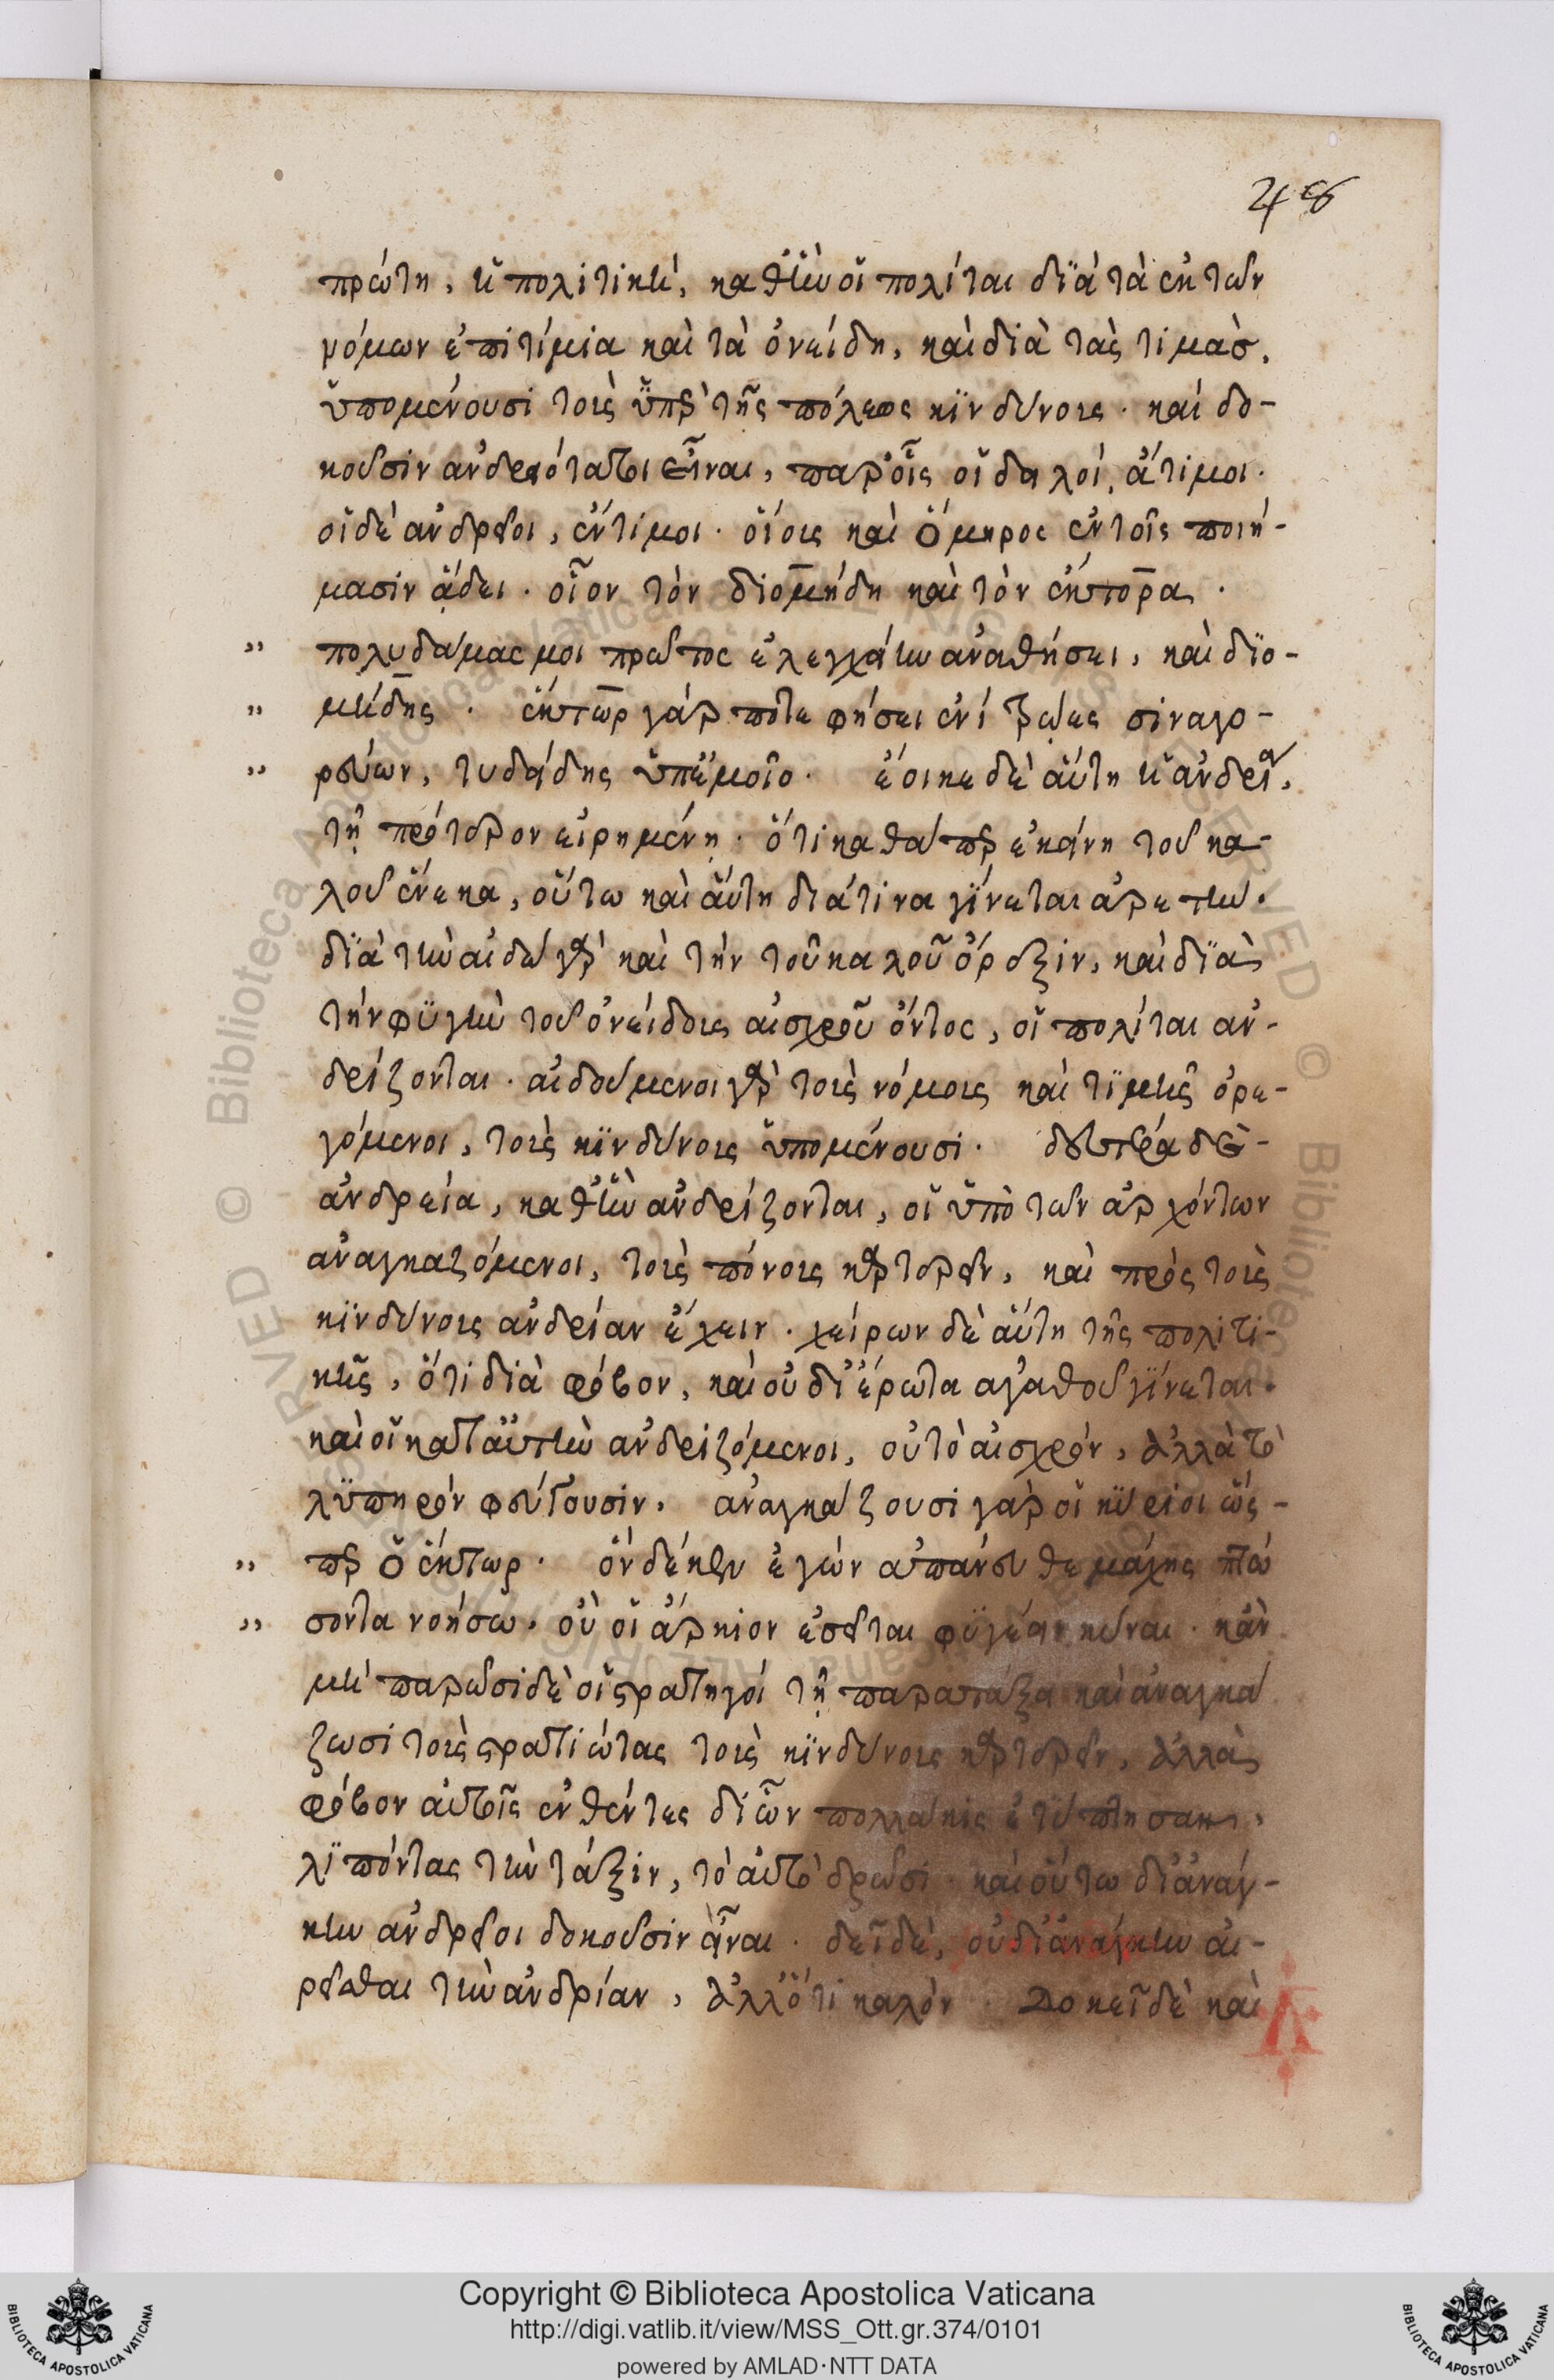 48
πρώτη, ἡ πολιτικὴ, καθ' ἣν οἱ πολίται διὰ τὰ ἐκ τῶν
νόμων ἐπιτίμια καὶ τὰ ὀνείδη, καὶ διὰ τὰς τιμὰς,
ὑπομένουσι τοὺς ὑπὲρ τῆς πόλεως κινδύνους · καὶ δο-
κοῦσιν ἀνδρειότατοι εἶναι, παρ' οἷς οἱ δειλοί, ἄτιμοι ·
οἱ δὲ ἀνδρεῖοι, ἔντιμοι · οἵους καὶ ὅμηρος ἐν τοῖς ποιή-
μασιν ᾄδει · οἷον τὸν διομήδη καὶ τὸν ἕκτορα ·
" πολυδάμας μοι πρῶτος ἐλεγχείην ἀναθήσει, καὶ διο-
" μήδης · ἕκτωρ γάρ ποτε φήσει ἐνὶ τρώεσς' ἀναγο-
" ρεύων, τυδείδης ὑπ' ἐμοῖο · ἔοικε δὲ αὕτη ἡ ἀνδρεία,
τῇ πρότερον εἰρημένῃ · ὅτι καθάπερ ἐκείνη τοῦ κα-
λοῦ ἕνεκα, οὕτω καὶ αὕτη διά τινα γίνεται ἀρετήν ·
διὰ τὴν αἰδῶ γὰρ καὶ τὴν τοῦ καλοῦ ὄρεξιν, καὶ διὰ
τὴν φυγὴν τοῦ ὀνείδους αἰσχροῦ ὄντος, οἱ πολίται ἀν-
δρίζονται · αἰδούμενοι γὰρ τοὺς νόμους καὶ τιμῆς ὀρε-
γόμενοι, τοὺς κινδύνους ὑπομένουσι · δευτέρα δὲ
ἀνδρεία, καθ' ἣν ἀνδρίζονται, οἱ ὑπὸ τῶν ἀρχόντων
ἀναγκαζόμενοι, τοὺς πόνους καρτερεῖν, καὶ πρὸς τοὺς
κινδύνους ἀνδρίαν ἔχειν · χείρων δὲ αὕτη τῆς πολιτι-
κῆς, ὅτι διὰ φόβον, καὶ οὐ δι' ἔρωτα ἀγαθοῦ γίνεται ·
καὶ οἱ κατ' αὐτὴν ἀνδριζόμενοι, οὐ τὸ αἰσχρόν, ἀλλὰ τὸ
λυπηρόν φεύγουσιν · ἀναγκάζουσι γὰρ οἱ κύριοι ὥς-
" περ ὁ ἕκτωρ · ὃν δέ κεν ἐγὼν ἀπάνευθε μάχης πτώ
" σοντα νοήσω · οὔ οἱ ἄρκιον ἐσεῖται φυγέειν κύνας · κἂν
μὴ παρῶσι δὲ οἱ στρατηγοί τῇ παρατάξει καὶ ἀναγκά
ζωσι τοὺς στρατιώτας τοὺς κινδύνους καρτερεῖν, ἀλλὰ
φόβον αὐτοῖς ἐνθέντες δι' ὧν πολλάκις
λιπόντας τὴν τάξιν, τὸ αὐτὸ δρῶσι · καὶ οὕτω δι' ἀνάγ-
κην ἀνδρεῖοι δοκοῦσιν εἶναι · δεῖ δὲ, οὐ δι' ἀνάγκην αἱ-
ρεῖσθαι τὴν ἀνδρίαν, ἀλλ' ὅτι καλόν · Δοκεῖ δὲ καὶ
Copyright © Biblioteca Apostolica Vaticana
http://digi.vatlib.it/view/MSS_Ott.gr.374/0101
powered by AMLAD·NTT DATA